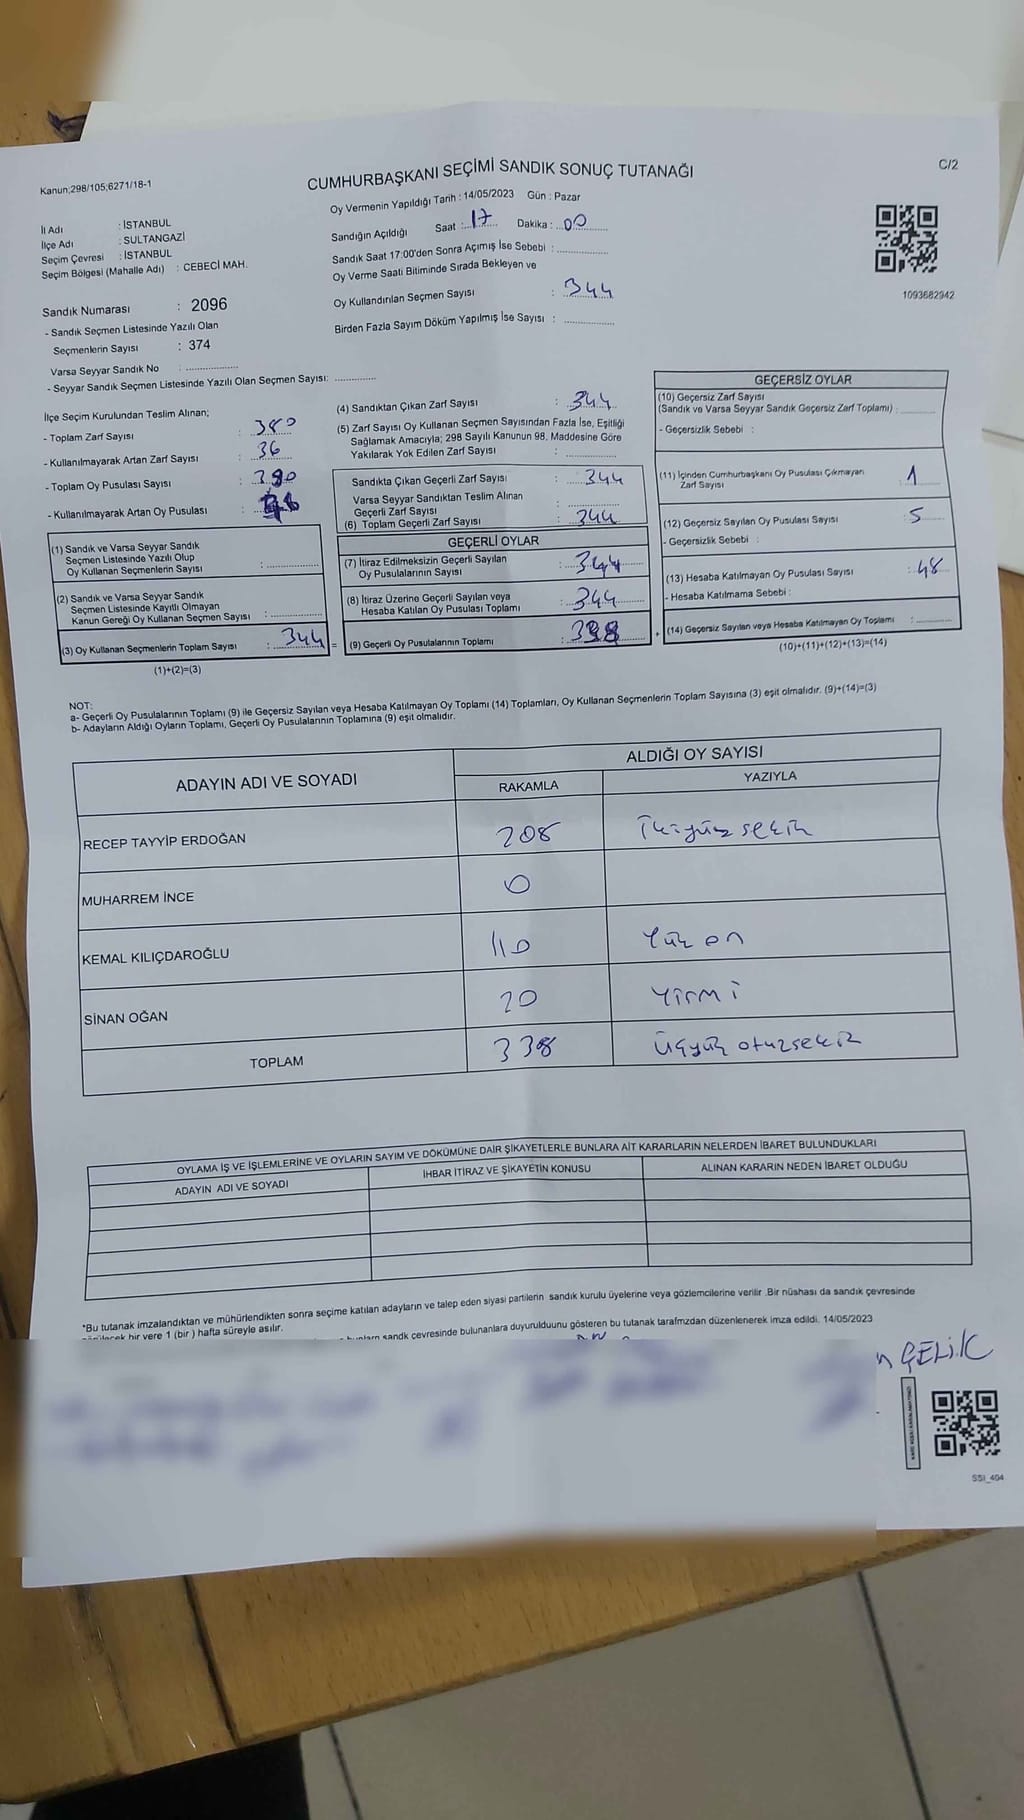 Kanun;298/105;6271/18-1
CUMHURBAŞKANI SEÇİMİ SANDIK SONUÇ TUTANAĞI
C/2
Oy Vermenin Yapıldığı Tarih : 14/05/2023 Gün : Pazar
İl Adı : İSTANBUL
İlçe Adı : SULTANGAZİ
Seçim Çevresi : İSTANBUL
Seçim Bölgesi (Mahalle Adı) : CEBECİ MAH.
Sandığın Açıldığı Saat : 17 Dakika : 00
Sandık Saat 17:00'den Sonra Açımış İse Sebebi :
Oy Verme Saati Bitiminde Sırada Bekleyen ve
Oy Kullandırılan Seçmen Sayısı : 344
Birden Fazla Sayım Döküm Yapılmış İse Sayısı :
1093682942
Sandık Numarası : 2096
- Sandık Seçmen Listesinde Yazılı Olan
Seçmenlerin Sayısı : 374
Varsa Seyyar Sandık No
- Seyyar Sandık Seçmen Listesinde Yazılı Olan Seçmen Sayısı:
İlçe Seçim Kurulundan Teslim Alınan;
- Toplam Zarf Sayısı : 380
- Kullanılmayarak Artan Zarf Sayısı : 36
- Toplam Oy Pusulası Sayısı :
- Kullanılmayarak Artan Oy Pusulası :
(1) Sandık ve Varsa Seyyar Sandık
Seçmen Listesinde Yazılı Olup
Oy Kullanan Seçmenlerin Sayısı :
(2) Sandık ve Varsa Seyyar Sandık
Seçmen Listesinde Kayıtlı Olmayan
Kanun Gereği Oy Kullanan Seçmen Sayısı :
(3) Oy Kullanan Seçmenlerin Toplam Sayısı : 344 =
(1)+(2)=(3)
(4) Sandıktan Çıkan Zarf Sayısı : 344
(5) Zarf Sayısı Oy Kullanan Seçmen Sayısından Fazla İse, Eşitliği
Sağlamak Amacıyla; 298 Sayılı Kanunun 98. Maddesine Göre
Yakılarak Yok Edilen Zarf Sayısı :
Sandıkta Çıkan Geçerli Zarf Sayısı : 344
Varsa Seyyar Sandıktan Teslim Alınan
Geçerli Zarf Sayısı :
(6) Toplam Geçerli Zarf Sayısı : 344
GEÇERLİ OYLAR
(7) İtiraz Edilmeksizin Geçerli Sayılan
Oy Pusulalarının Sayısı : 344
(8) İtiraz Üzerine Geçerli Sayılan veya
Hesaba Katılan Oy Pusulası Toplamı : 344
(9) Geçerli Oy Pusulalarının Toplamı : 338 +
GEÇERSİZ OYLAR
(10) Geçersiz Zarf Sayısı
(Sandık ve Varsa Seyyar Sandık Geçersiz Zarf Toplamı) :
- Geçersizlik Sebebi :
(11) İçinden Cumhurbaşkanı Oy Pusulası Çıkmayan
Zarf Sayısı : 1
(12) Geçersiz Sayılan Oy Pusulası Sayısı : 5
- Geçersizlik Sebebi :
(13) Hesaba Katılmayan Oy Pusulası Sayısı : 48
- Hesaba Katılmama Sebebi :
(14) Geçersiz Sayılan veya Hesaba Katılmayan Oy Toplamı :
(10)+(11)+(12)+(13)=(14)
NOT:
a- Geçerli Oy Pusulalarının Toplamı (9) ile Geçersiz Sayılan veya Hesaba Katılmayan Oy Toplamı (14) Toplamları, Oy Kullanan Seçmenlerin Toplam Sayısına (3) eşit olmalıdır. (9)+(14)=(3)
b- Adayların Aldığı Oyların Toplamı, Geçerli Oy Pusulalarının Toplamına (9) eşit olmalıdır.
ADAYIN ADI VE SOYADI
ALDIĞI OY SAYISI
RAKAMLA YAZIYLA
RECEP TAYYİP ERDOĞAN 208 İkiyüz sekiz
MUHARREM İNCE 0
KEMAL KILIÇDAROĞLU 110 Yüz on
SİNAN OĞAN 20 Yirmi
TOPLAM 338 Üçyüz otuzsekiz
OYLAMA İŞ VE İŞLEMLERİNE VE OYLARIN SAYIM VE DÖKÜMÜNE DAİR ŞİKAYETLERLE BUNLARA AİT KARARLARIN NELERDEN İBARET BULUNDUKLARI
ADAYIN ADI VE SOYADI İHBAR İTİRAZ VE ŞİKAYETİN KONUSU ALINAN KARARIN NEDEN İBARET OLDUĞU
*Bu tutanak imzalandıktan ve mühürlendikten sonra seçime katılan adayların ve talep eden siyasi partilerin sandık kurulu üyelerine veya gözlemcilerine verilir .Bir nüshası da sandık çevresinde
bir yere 1 (bir ) hafta süreyle asılır.
sandık çevresinde bulunanlara duyurulduunu gösteren bu tutanak tarafımzdan düzenlenerek imza edildi. 14/05/2023
ÇELİK
SSI_404